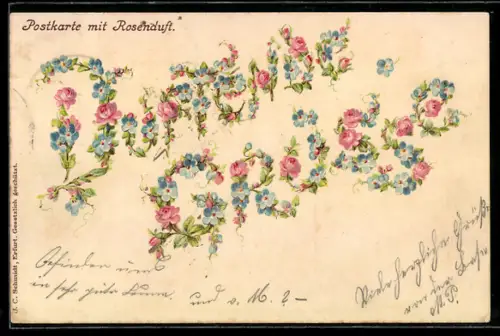 Postkarte mit Rosenduft.
Grüsse
J. C. Schmidt, Erfurt. Gesetzlich geschützt.
Befinden uns
in sehr guter Laune. und v. M. ? –
Viele herzliche Grüße
von